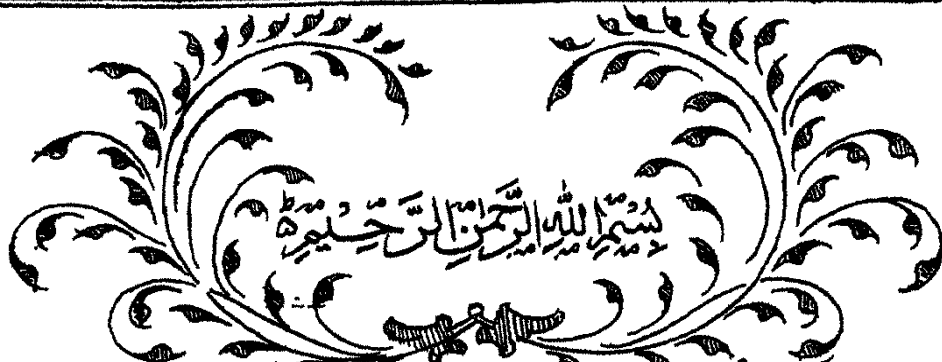 بِسْمِ اللّٰهِ الرَّحْمٰنِ الرَّحِيْمِ ط